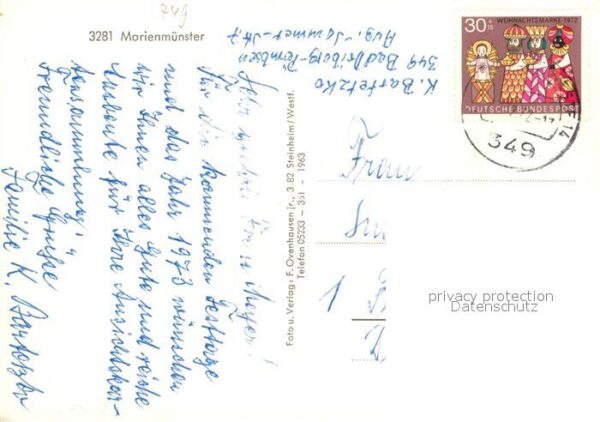 749
3281 Marienmünster
Sehr geehrte Frau Meyer!
Für die kommenden Festtage
und das Jahr 1973 wünschen
wir Ihnen alles Gute und reiche
Ausbeute für Ihre Ansichtskar-
tensammlung!
Freundliche Grüsse
Familie K. Bartetzko
Foto u. Verlag: F. Ovenhausen jr., 3 82 Steinheim/Westf.
Telefon 05233 - 351 - 1963
K. Bartetzko
349 Bad Driburg-Pömbsen
Aug.-Sommer-Str. 7
30+15
WEIHNACHTSMARKE 1972
DEUTSCHE BUNDESPOST
349
Frau
1
privacy protection
Datenschutz